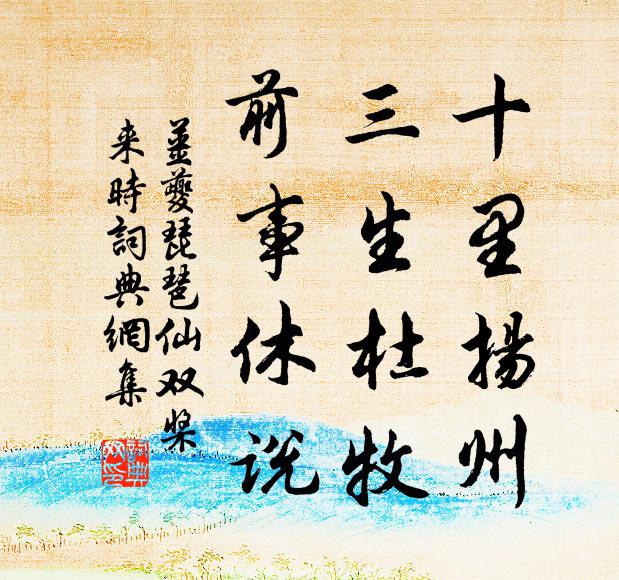 十里揚州
三生杜牧
前事休说
姜夔琵琶仙双桨
来時詞典網集